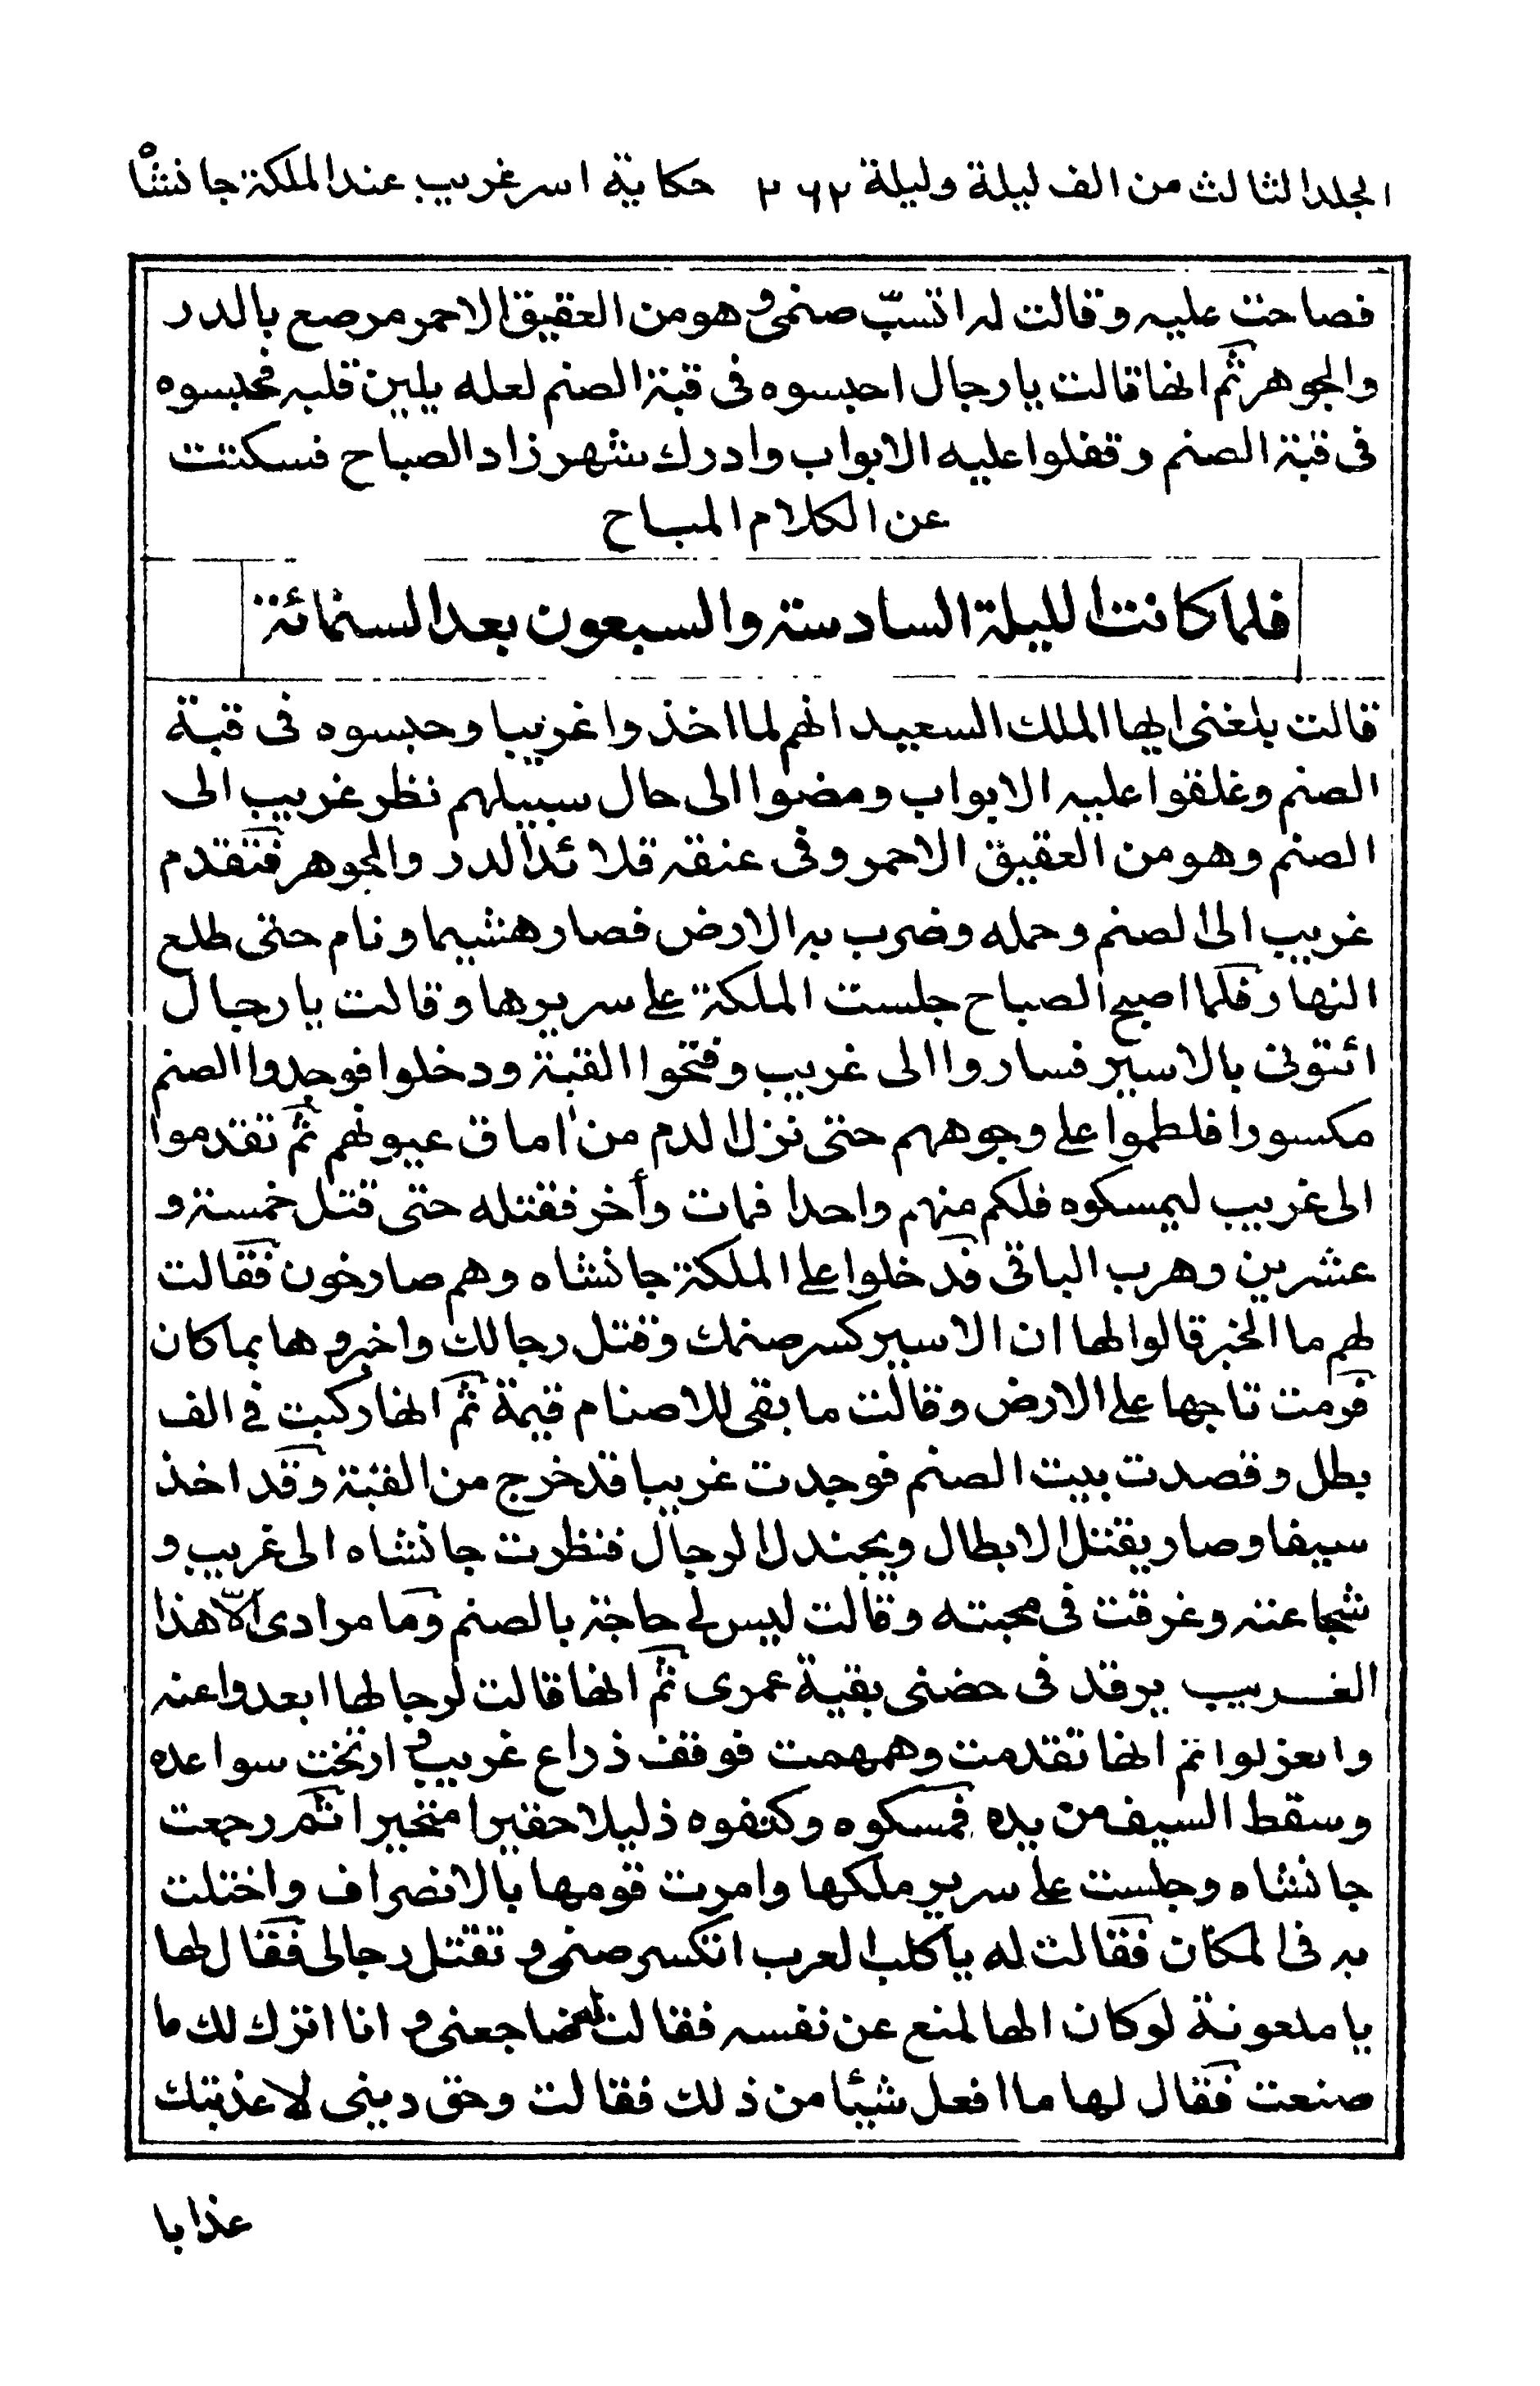 المجلد الثالث من الف ليلة وليلة ٢٦٢ حكاية اسر غريب عند الملكة جانشاه
فصاحت عليه وقالت له اتسبّ صنمي وهو من العقيق الاحمر مرصع بالدر
والجوهر ثم انها قالت يا رجال احبسوه فى قبة الصنم لعله يلين قلبه فحبسوه
فى قبة الصنم وقفلوا عليه الابواب وادرك شهرزاد الصباح فسكتت
عن الكلام المباح
فلما كانت الليلة السادسة والسبعون بعد الستمائة
قالت بلغنى ايها الملك السعيد انهم لما اخذوا غريبا وحبسوه فى قبة
الصنم وغلقوا عليه الابواب ومضوا الى حال سبيلهم نظر غريب الى
الصنم وهو من العقيق الاحمر وفى عنقه قلائد الدر والجوهر فتقدم
غريب الى الصنم وحمله وضرب به الارض فصار هشيما ونام حتى طلع
النهار فلما اصبح الصباح جلست الملكة على سريرها وقالت يا رجال
ائتونى بالاسير فساروا الى غريب وفتحوا القبة ودخلوا فوجدوا الصنم
مكسورا فلطموا على وجوههم حتى نزل الدم من اماق عيونهم ثم تقدموا
الى غريب ليمسكوه فلكم منهم واحدا فمات وأخر فقتله حتى قتل خمسة و
عشرين وهرب الباقى فدخلوا على الملكة جانشاه وهم صارخون فقالت
لهم ما الخبر قالوا لها ان الاسير كسر صنمك وقتل رجالك واخبروها بما كان
فرمت تاجها على الارض وقالت ما بقى للاصنام قيمة ثم انها ركبت فى الف
بطل وقصدت بيت الصنم فوجدت غريبا قد خرج من القبة وقد اخذ
سيفا وصار يقتل الابطال ويجندل الرجال فنظرت جانشاه الى غريب و
شجاعته وغرقت فى محبته وقالت ليس لى حاجة بالصنم وما مرادى الّا هذا
الغريب يرقد فى حضنى بقية عمرى ثم انها قالت لرجالها ابعدوا عنه
وانعزلوا ثم انها تقدمت وهمهمت فوقف ذراع غريب وارتخت سواعده
وسقط السيف من يده فمسكوه وكتفوه ذليلا حقيرا متحيرا ثم رجعت
جانشاه وجلست على سرير ملكها وامرت قومها بالانصراف واختلت
به فى المكان فقالت له يا كلب العرب اتكسر صنمى وتقتل رجالى فقال لها
يا ملعونة لو كان الها لمنع عن نفسه فقالت له ضاجعنى وانا اترك لك ما
صنعت فقال لها ما افعل شيئا من ذلك فقالت وحق دينى لاعذبنك
عذابا